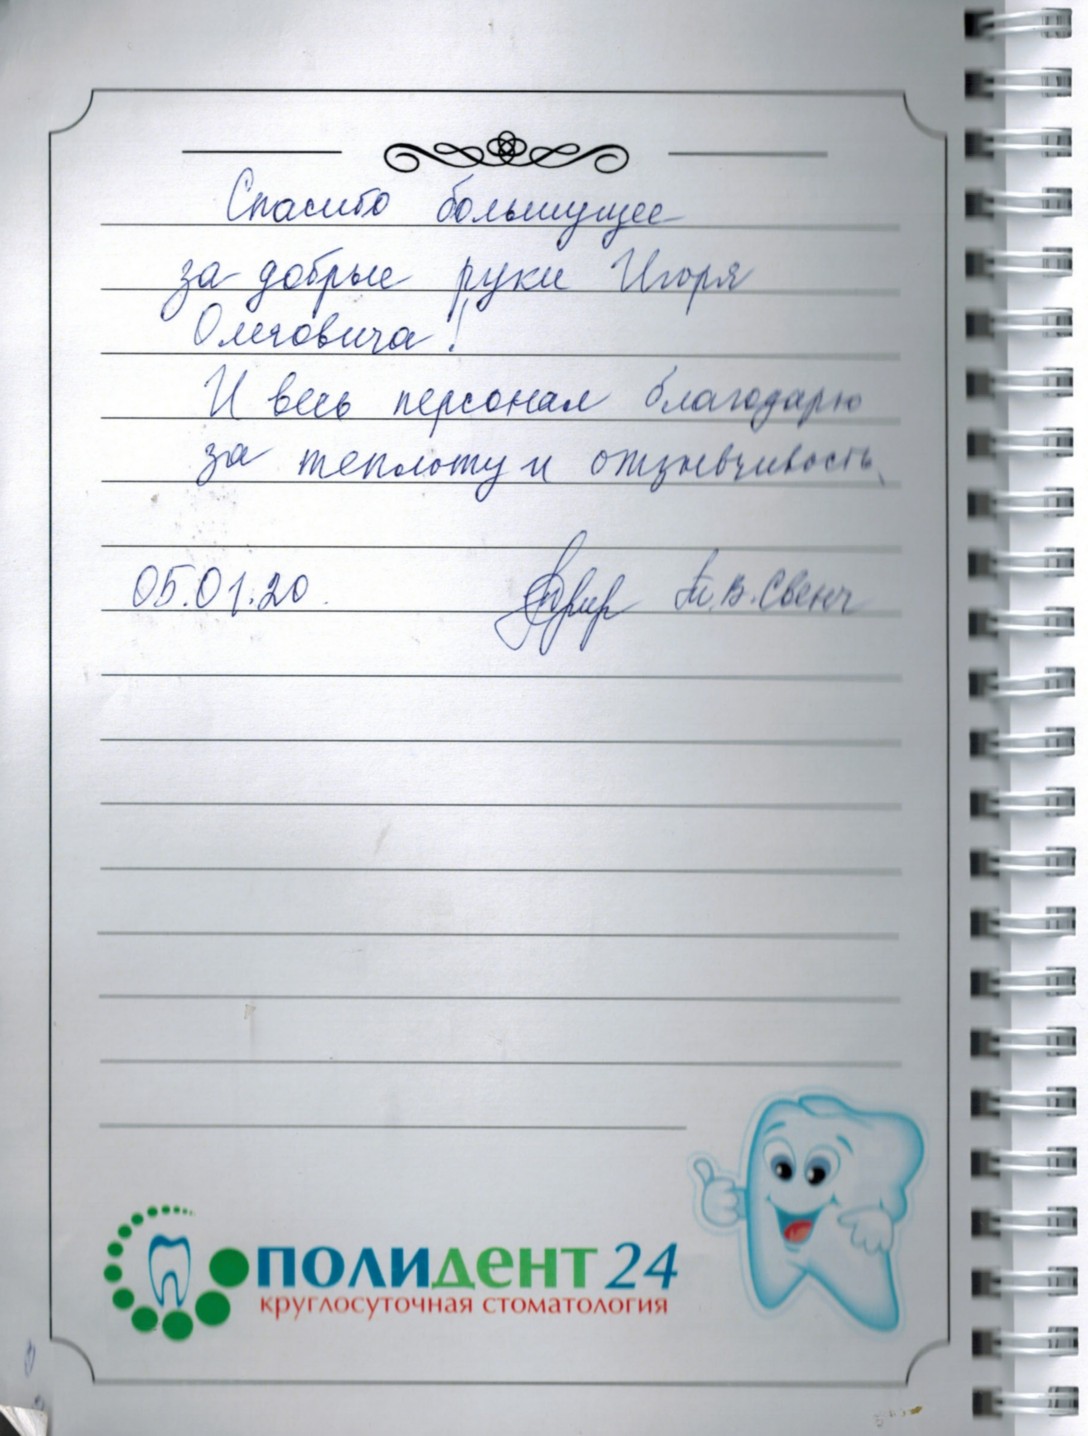 Спасибо большущее
за добрые руки Игоря
Олеговича!
И весь персонал благодарю
за теплоту и отзывчивость.
05.01.20.
ПОЛИДЕНТ 24
круглосуточная стоматология